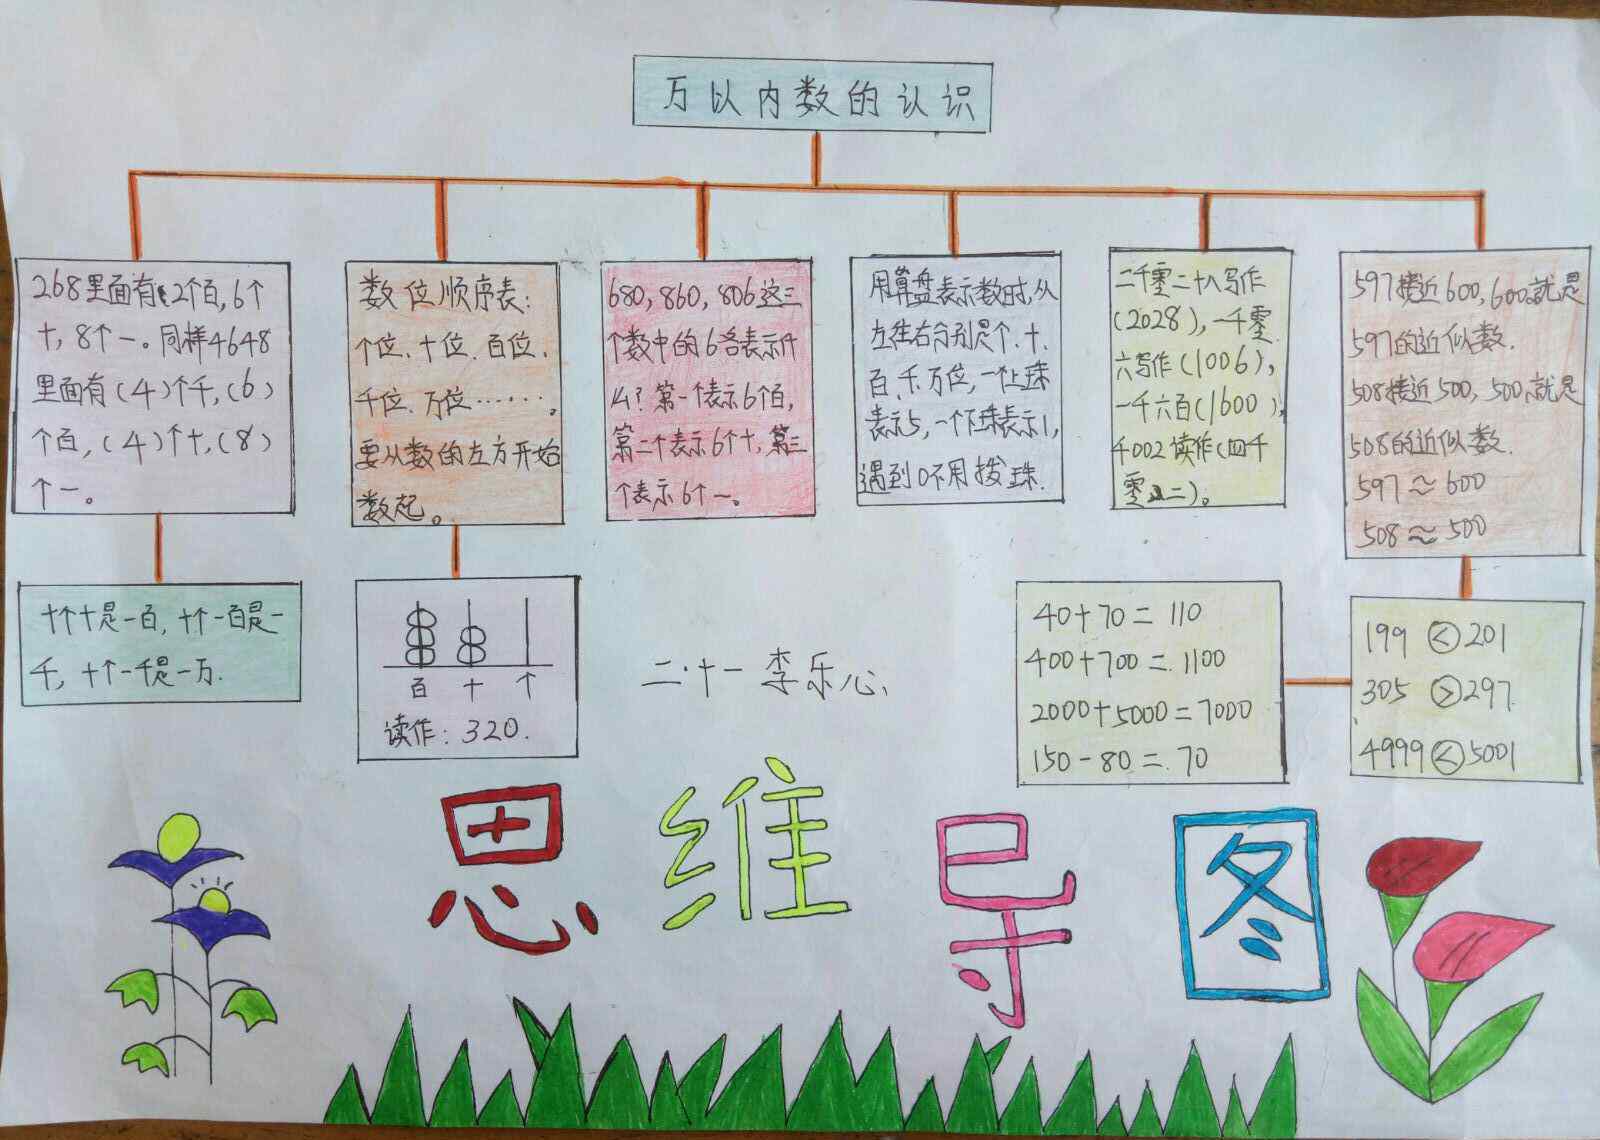 万以内数的认识
268里面有2个百,6个
十,8个一。同样4648
里面有(4)个千,(6)
个百,(4)个十,(8)
个一。
数位顺序表:
个位、十位、百位、
千位、万位……。
要从数的左方开始
数起。
680,860,806这三
个数中的6各表示什
么?第一个表示6个百,
第二个表示6个十,第三
个表示6个一。
用算盘表示数时,从
左往右分别是个、十、
百、千、万位,一个上珠
表示5,一个下珠表示1,
遇到0不用拨珠.
二千零二十八写作
(2028),一千零
六写作(1006),
一千六百(1600),
4002读作(四千
零二)。
597接近600,600就是
597的近似数.
508接近500,500就是
508的近似数.
597≈600
508≈500
十个十是一百,十个一百是一
千,十个一千是一万.
百 十 个
读作:320.
二·十一 李乐心
40+70=110
400+700=1100
2000+5000=7000
150-80=70
199<201
305>297
4999<5001
思维导图